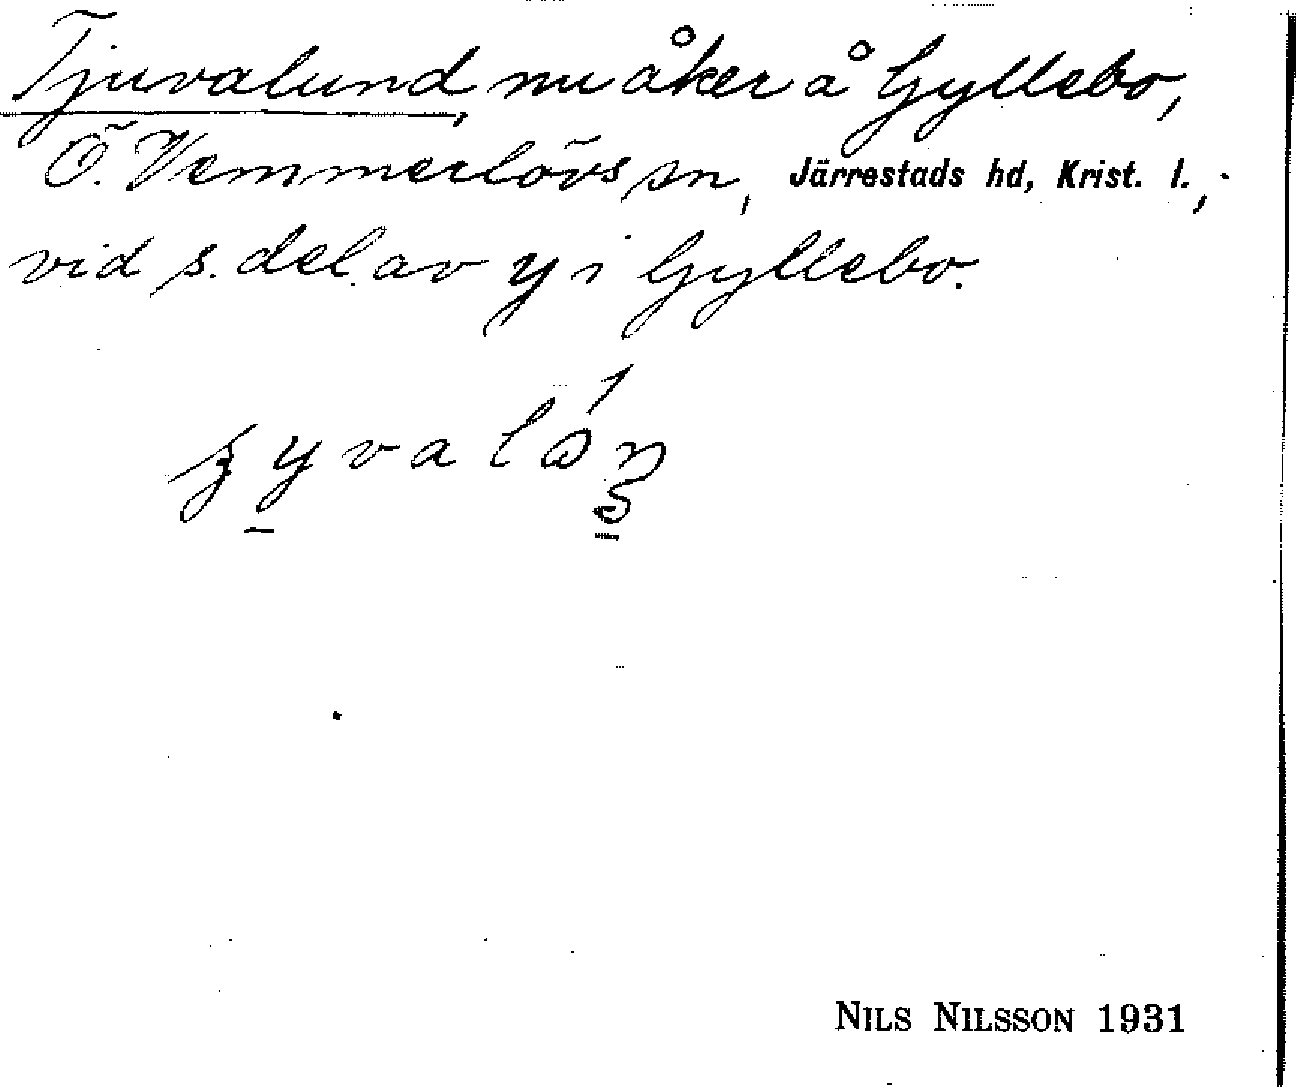 Tjuvalund, nu åker å Gyllebo,
Ö. Vemmerlövs sn, Järrestads hd, Krist. l.,
vid s. del. av y i Gyllebo.
NILS NILSSON 1931